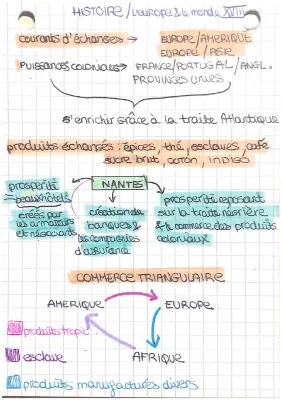 HISTOIRE / L'europe & le monde XVIII
courants d'échanges → EUROPE/AMERIQUE
EUROPE / ASIE
PUISSANCES COLONIALES → FRANCE/PORTUGAL/ANGL.
PROVINCES UNIES
s'enrichir grâce à la traite Atlantique
produits échangés : épices, thé, esclaves, café
sucre brut, coton, indigo
NANTES
prospérité
beaux hôtels
créés par
les armateurs
et négociants
création de
banques &
les compagnies
d'assurance
prospérité reposant
sur la traite négrière
& le commerce des produits
coloniaux
COMMERCE TRIANGULAIRE
AMERIQUE EUROPE
produits tropic.
esclave AFRIQUE
produits manufacturés divers